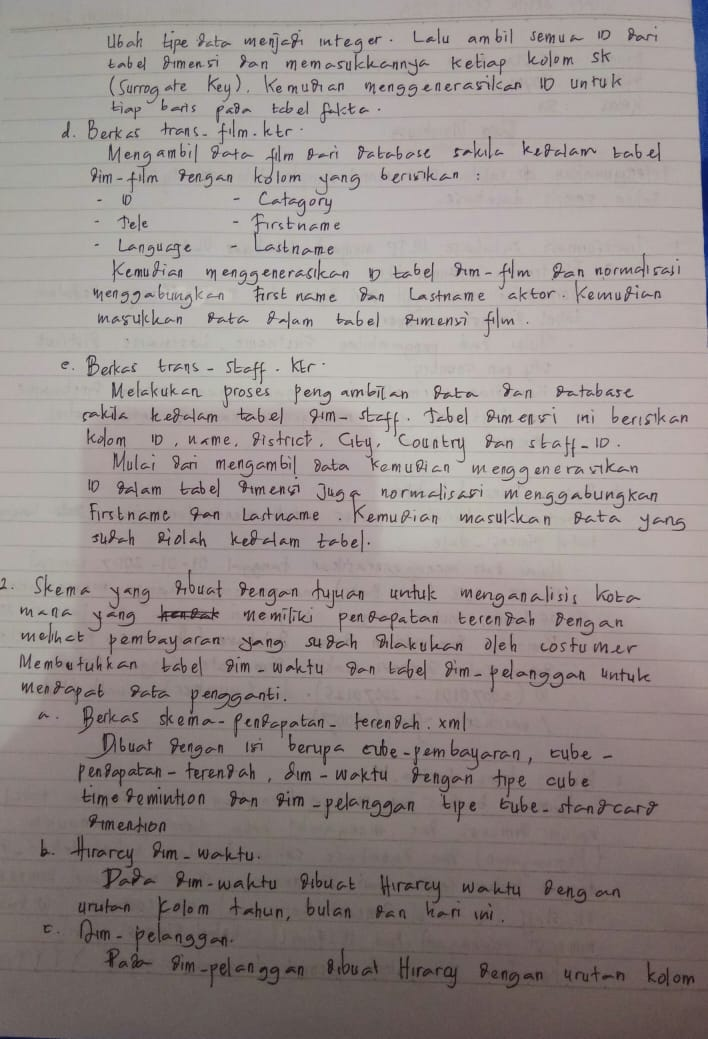 Ubah tipe data menjadi integer. Lalu ambil semua ID dari
tabel dimensi dan memasukkannya ketiap kolom sk
(Surrogate Key). Kemudian menggenerasikan ID untuk
tiap baris pada tabel fakta.
d. Berkas trans-film.ktr.
Mengambil data film dari database sakila kedalam tabel
dim-film dengan kolom yang berisikan :
- ID - Catagory
- Tele - Firstname
- Language - Lastname
Kemudian menggenerasikan ID tabel dim-film dan normalisasi
menggabungkan First name dan Lastname aktor. Kemudian
masukkan data dalam tabel dimensi film.
e. Berkas trans-staff.ktr.
Melakukan proses pengambilan data dan database
sakila kedalam tabel dim-staff. Tabel dimensi ini berisikan
kolom ID, name, district, City, Country dan staff-ID.
Mulai dari mengambil data kemudian menggenerasikan
ID dalam tabel dimensi Juga normalisasi menggabungkan
Firstname dan Lastname. Kemudian masukkan data yang
sudah diolah kedalam tabel.
2. Skema yang dibuat dengan tujuan untuk menganalisis kota
mana yang memiliki pendapatan terendah dengan
melihat pembayaran yang sudah dilakukan oleh costumer
Membutuhkan tabel dim-waktu dan tabel dim-pelanggan untuk
mendapat data pengganti.
a. Berkas skema-pendapatan-terendah.xml
Dibuat dengan isi berupa cube-pembayaran, cube-
pendapatan-terendah, dim-waktu dengan tipe cube
time demintion dan dim-pelanggan tipe cube-standcard
dimention
b. Hirarcy dim-waktu.
Pada dim-waktu dibuat Hirarcy waktu dengan
urutan kolom tahun, bulan dan hari ini.
c. Dim-pelanggan.
Pada dim-pelanggan dibuat Hirarcy dengan urutan kolom